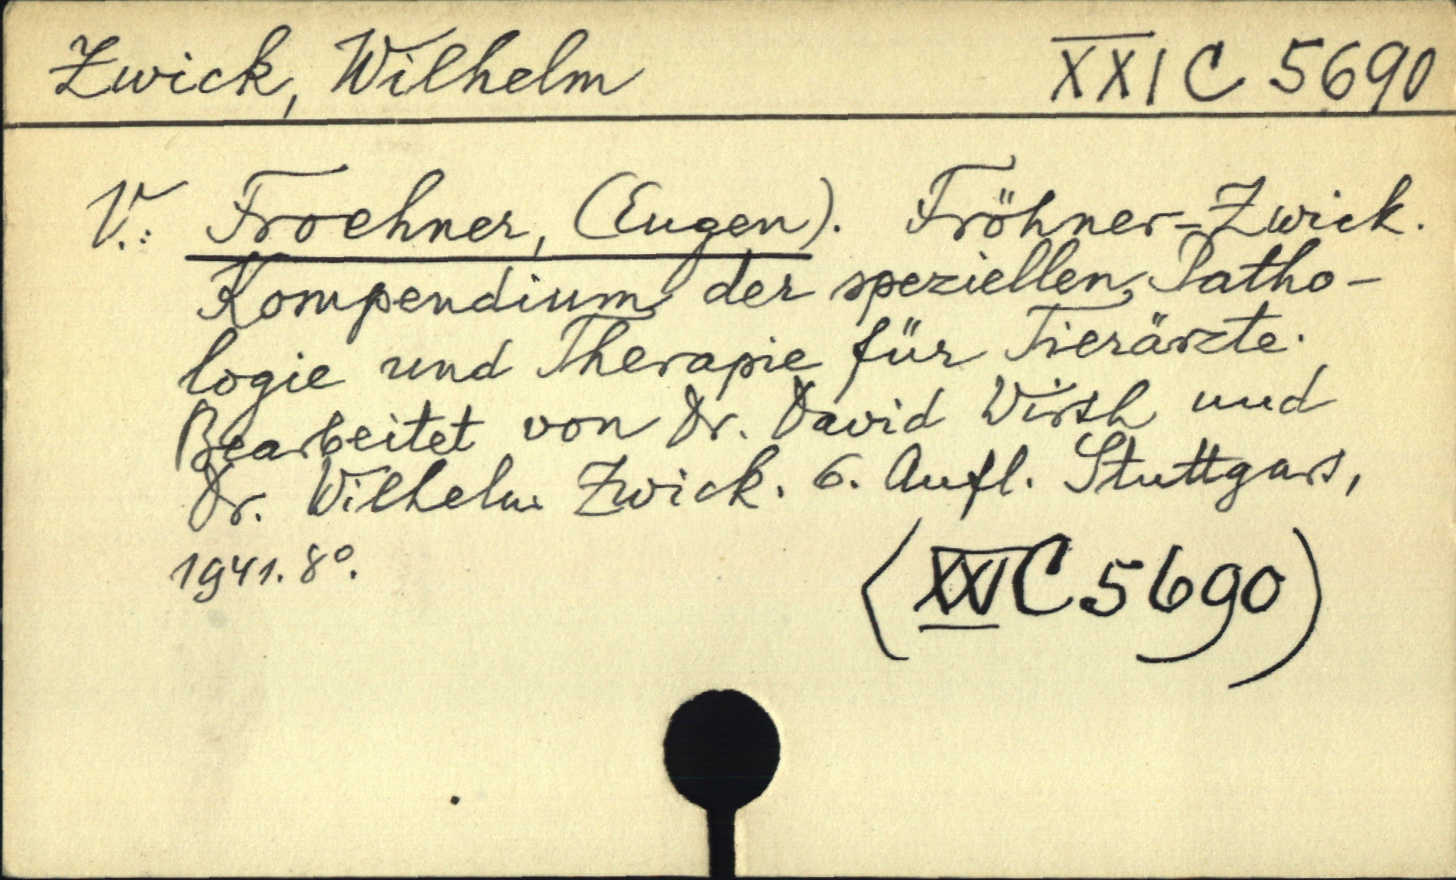 Zwick, Wilhelm
XXI C 5690
V.: Froehner, (Eugen). Fröhner-Zwick.
Kompendium der speziellen Patho-
logie und Therapie für Tierärzte.
Bearbeitet von Dr. David Wirth und
Dr. Wilhelm Zwick. 6. Aufl. Stuttgart,
1941. 8°.
(XXI C 5690)